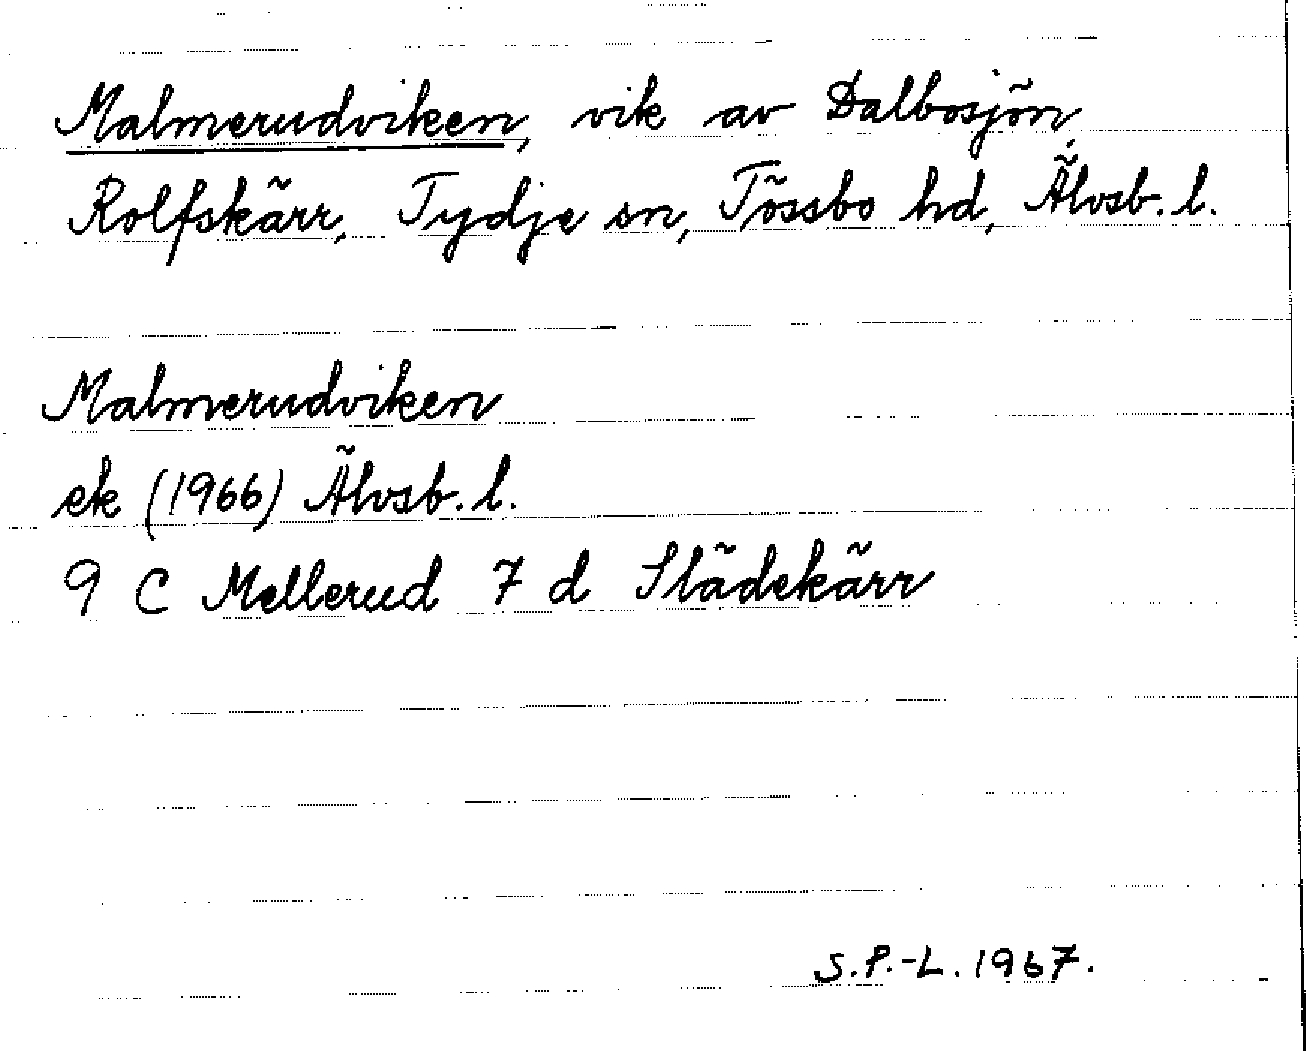 Malmerudviken, vik av Dalbosjön,
Rolfskärr, Tydje sn, Tössbo hd, Älvsb. l.
Malmerudviken
ek (1966) Älvsb. l.
9 C Mellerud 7 d Slädekärr
S.P.-L. 1967.